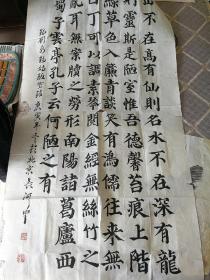 山不在高有仙則名水不在深有龍
靈斯是陋室惟吾德馨苔痕上階
綠草色入簾青談笑有鴻儒往來無
白丁可以調素琴閱金經無絲竹之
亂耳無案牘之勞形南陽諸葛廬西
蜀子雲亭孔子云何陋之有
劉禹錫陋室銘 庚寅年冬於北京長河